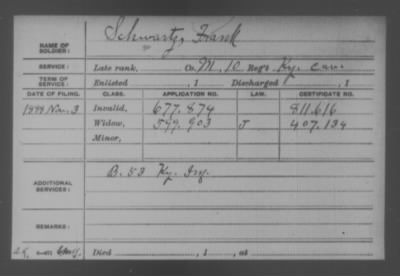 NAME OF SOLDIER: Schwartz, Frank
SERVICE: Late rank, Co. M, 10 Reg't Ky. Cav.
TERM OF SERVICE: Enlisted , 1 Discharged , 1
DATE OF FILING. CLASS. APPLICATION NO. LAW. CERTIFICATE NO.
Nov. 3 Invalid, 677.874 811.616
Widow, 599.903 J 407.134
Minor,
ADDITIONAL SERVICES: B. 53 Ky. Inf.
REMARKS:
Died , 1 , at